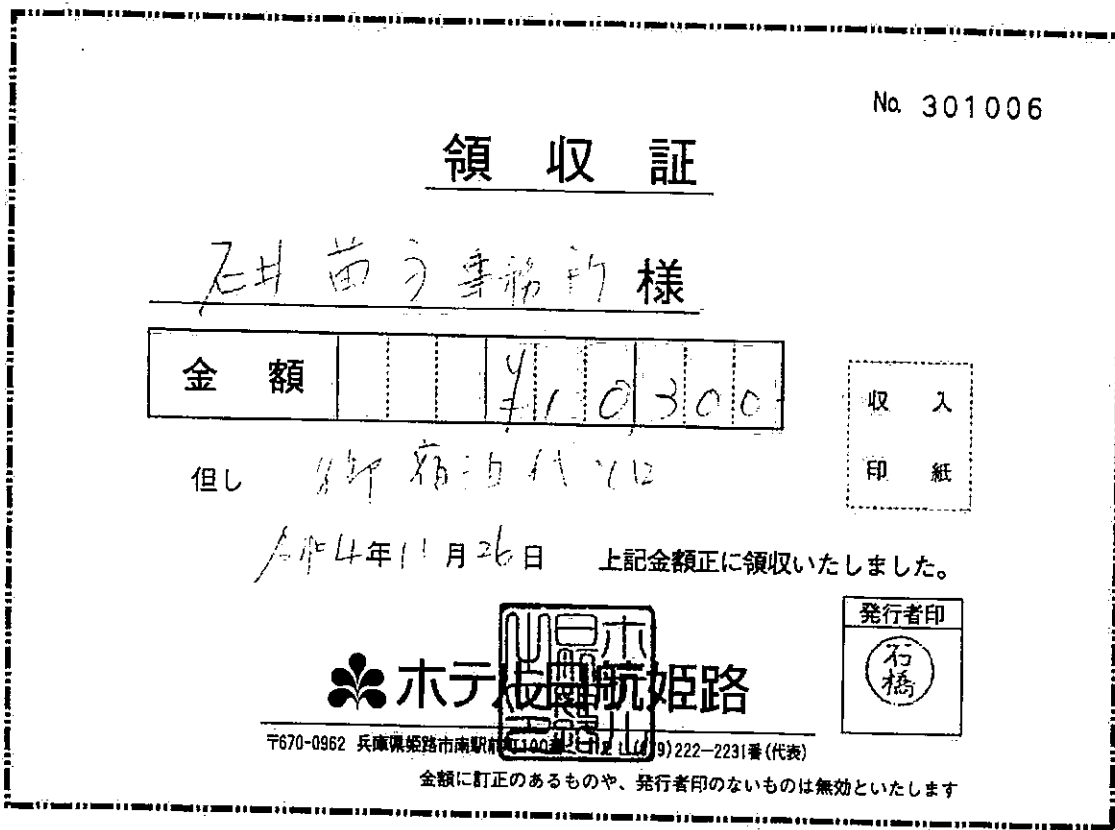 No. 301006
領収証
石井苗子事務所 様
金額 ¥10,300
収入
印紙
但し 御宿泊代として
令和4年11月26日 上記金額正に領収いたしました。
発行者印
石橋
ホテル日航姫路
〒670-0962 兵庫県姫路市南駅前町100番 (079)222-2231番(代表)
金額に訂正のあるものや、発行者印のないものは無効といたします